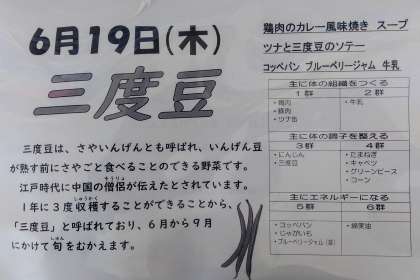 6月19日(木)
三度豆
三度豆は、さやいんげんとも呼ばれ、いんげん豆
が熟す前にさやごと食べることのできる野菜です。
江戸時代に中国の僧侶が伝えたとされています。
1年に3度収穫することができることから、
「三度豆」と呼ばれており、6月から9月
にかけて旬をむかえます。
鶏肉のカレー風味焼き スープ
ツナと三度豆のソテー
コッペパン ブルーベリージャム 牛乳
主に体の組織をつくる
1群 2群
・鶏肉 ・牛乳
・豚肉
・ツナ缶
主に体の調子を整える
3群 4群
・にんじん ・たまねぎ
・三度豆 ・キャベツ
・グリーンピース
・コーン
主にエネルギーになる
5群 6群
・コッペパン ・綿実油
・じゃがいも
・ブルーベリージャム